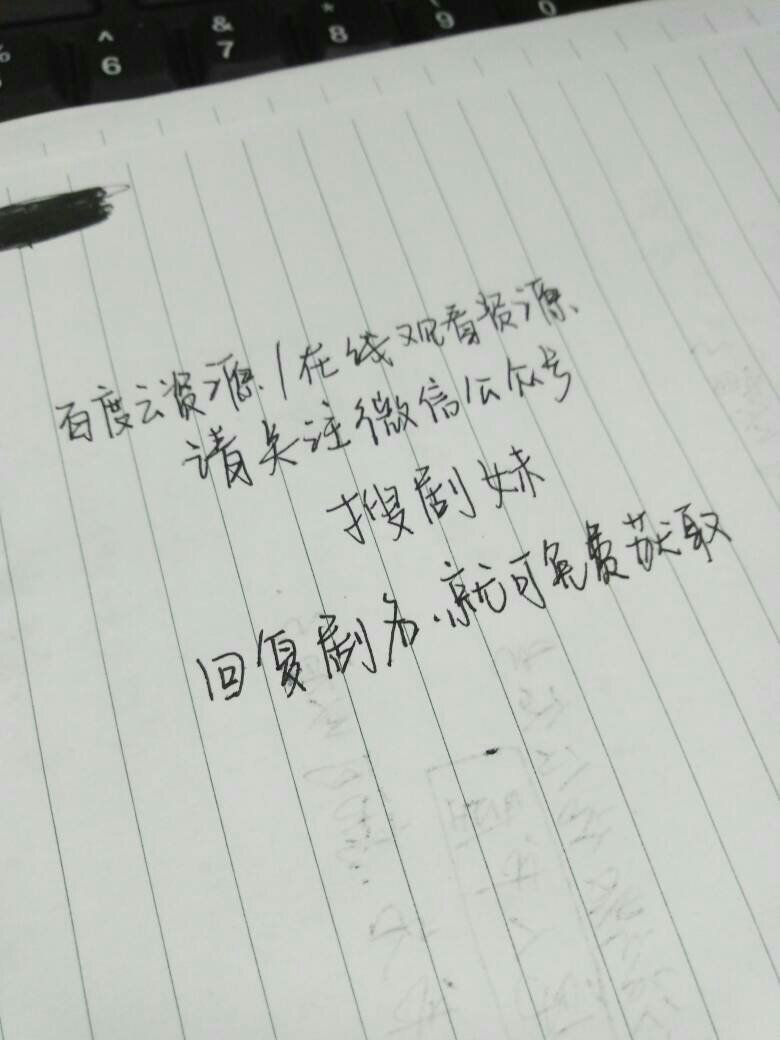 ^ & * (
6 7 8 9 0
百度云资源/在线观看资源、
请关注微信公众号
搜剧妹
回复剧名.就可免费获取